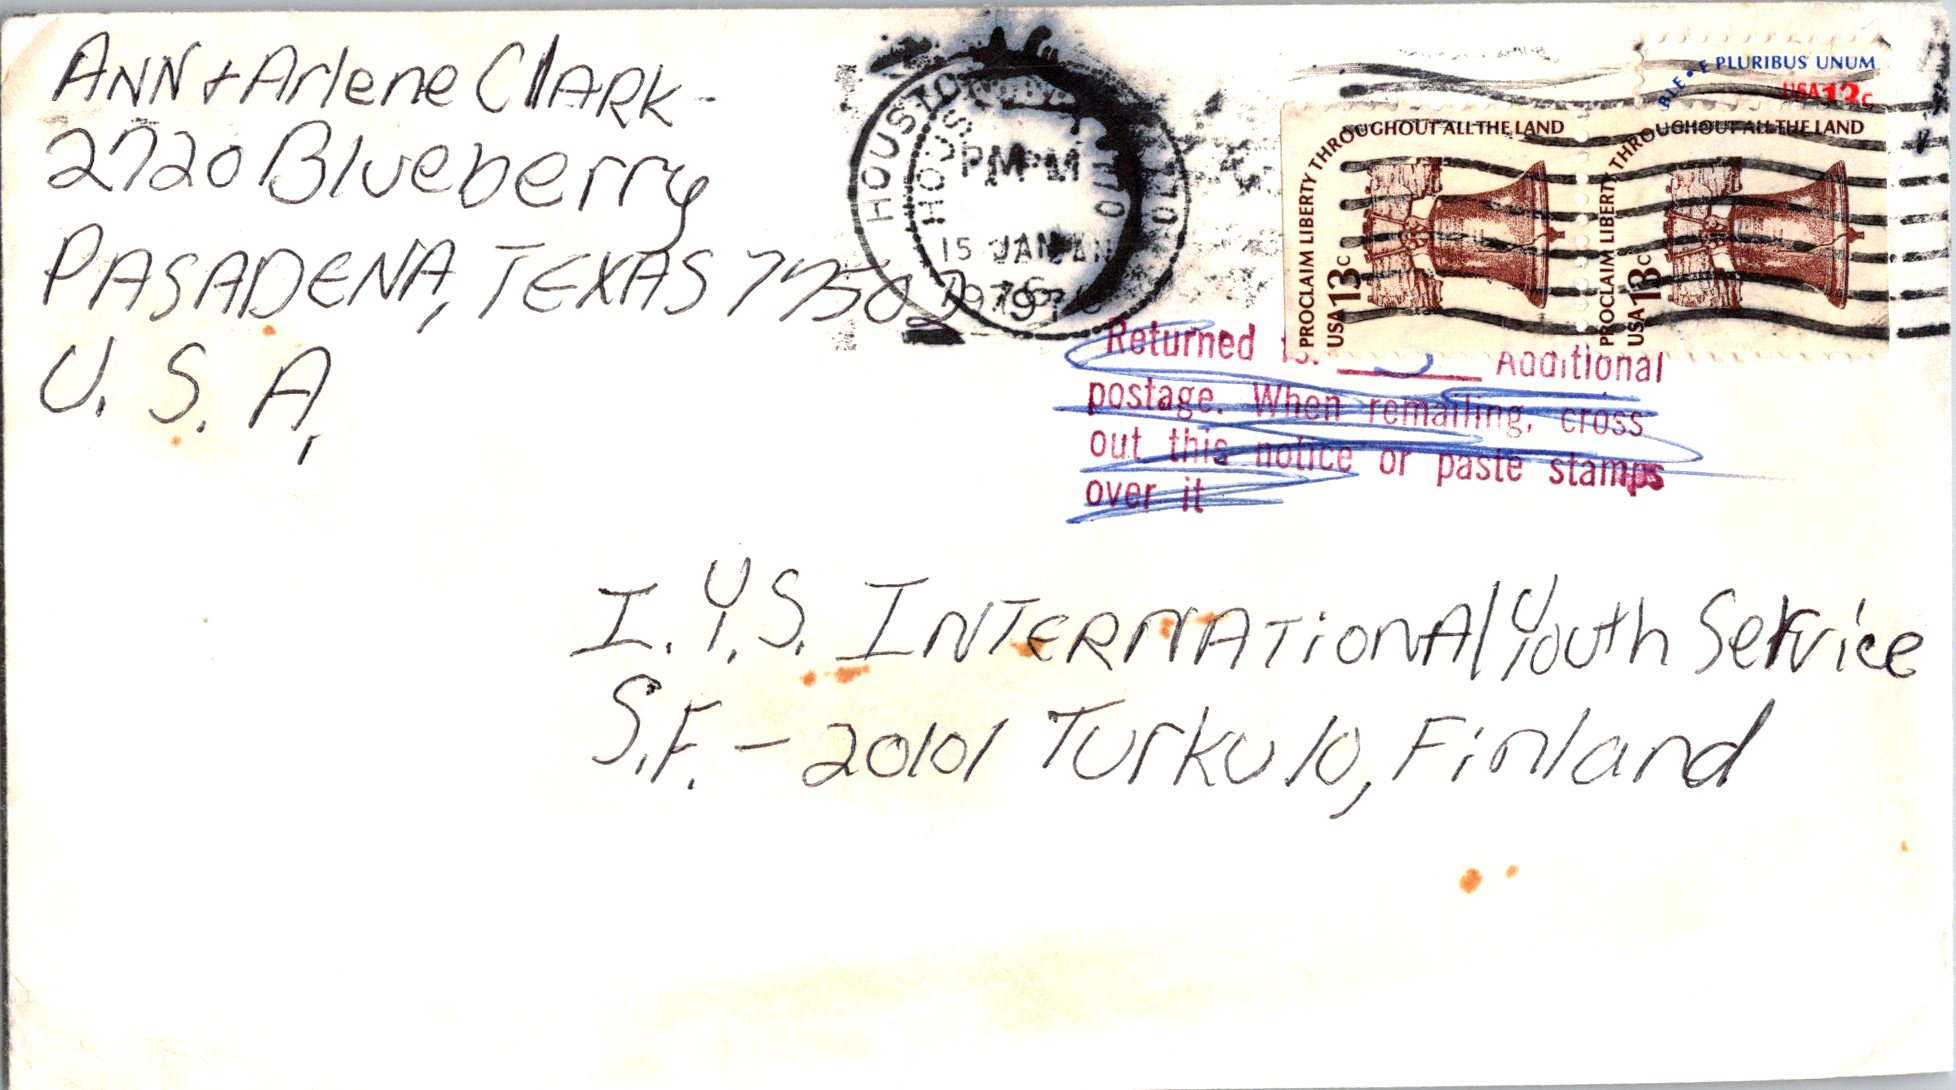 ANN + Arlene ClARK-
2720 Blueberry
PASADENA, TEXAS 77502
U. S. A,
HOUSTON
HOUS
PM
15 JAN
1979
770
PLURIBUS UNUM
USA 13c
PROCLAIM LIBERTY THROUGHOUT ALL THE LAND
USA 13c
PROCLAIM LIBERTY THROUGHOUT ALL THE LAND
USA 13c
Returned Additional
postage. When remailing, cross
out this notice or paste stamps
over it
I. Y.S. INTERNATIONAl Youth Service
S.F. - 20101 Turku 10, Finland